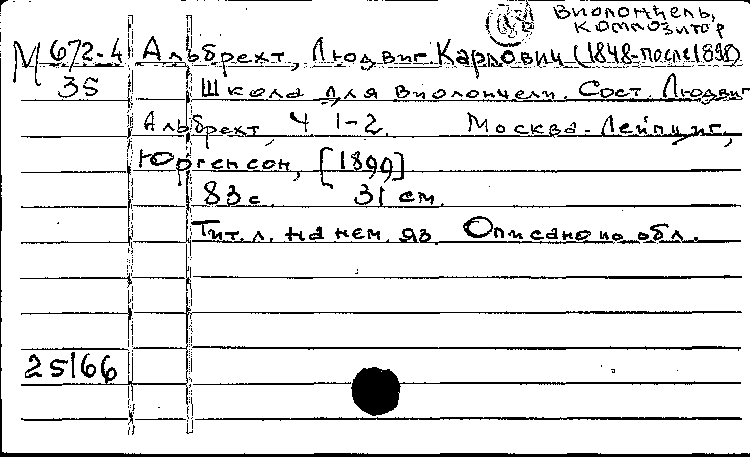 Виолончель,
композитор
М 672-4 Альбрехт, Людвиг Карлович (1848-после 1898)
35 Школа для виолончели. Сост. Людвиг
Альбрехт, Ч 1-2. Москва-Лейпциг,
Юргенсон, [1899]
83 с. 31 см.
Тит. л. на нем. яз. Описано по обл.
25166